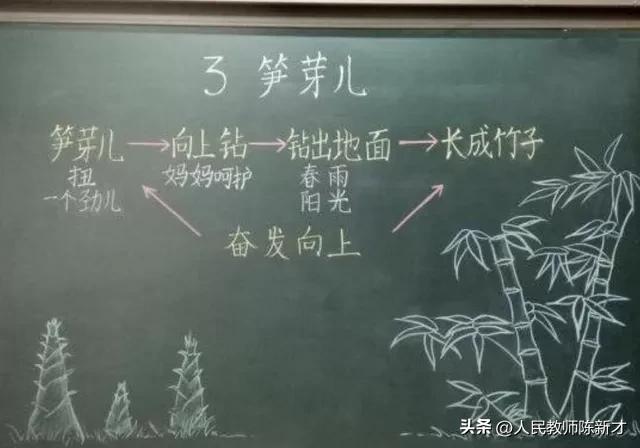 3 笋芽儿
笋芽儿→向上钻→钻出地面→长成竹子
扭 妈妈呵护 春雨
一个劲儿 阳光
奋发向上
头条 @人民教师陈新才